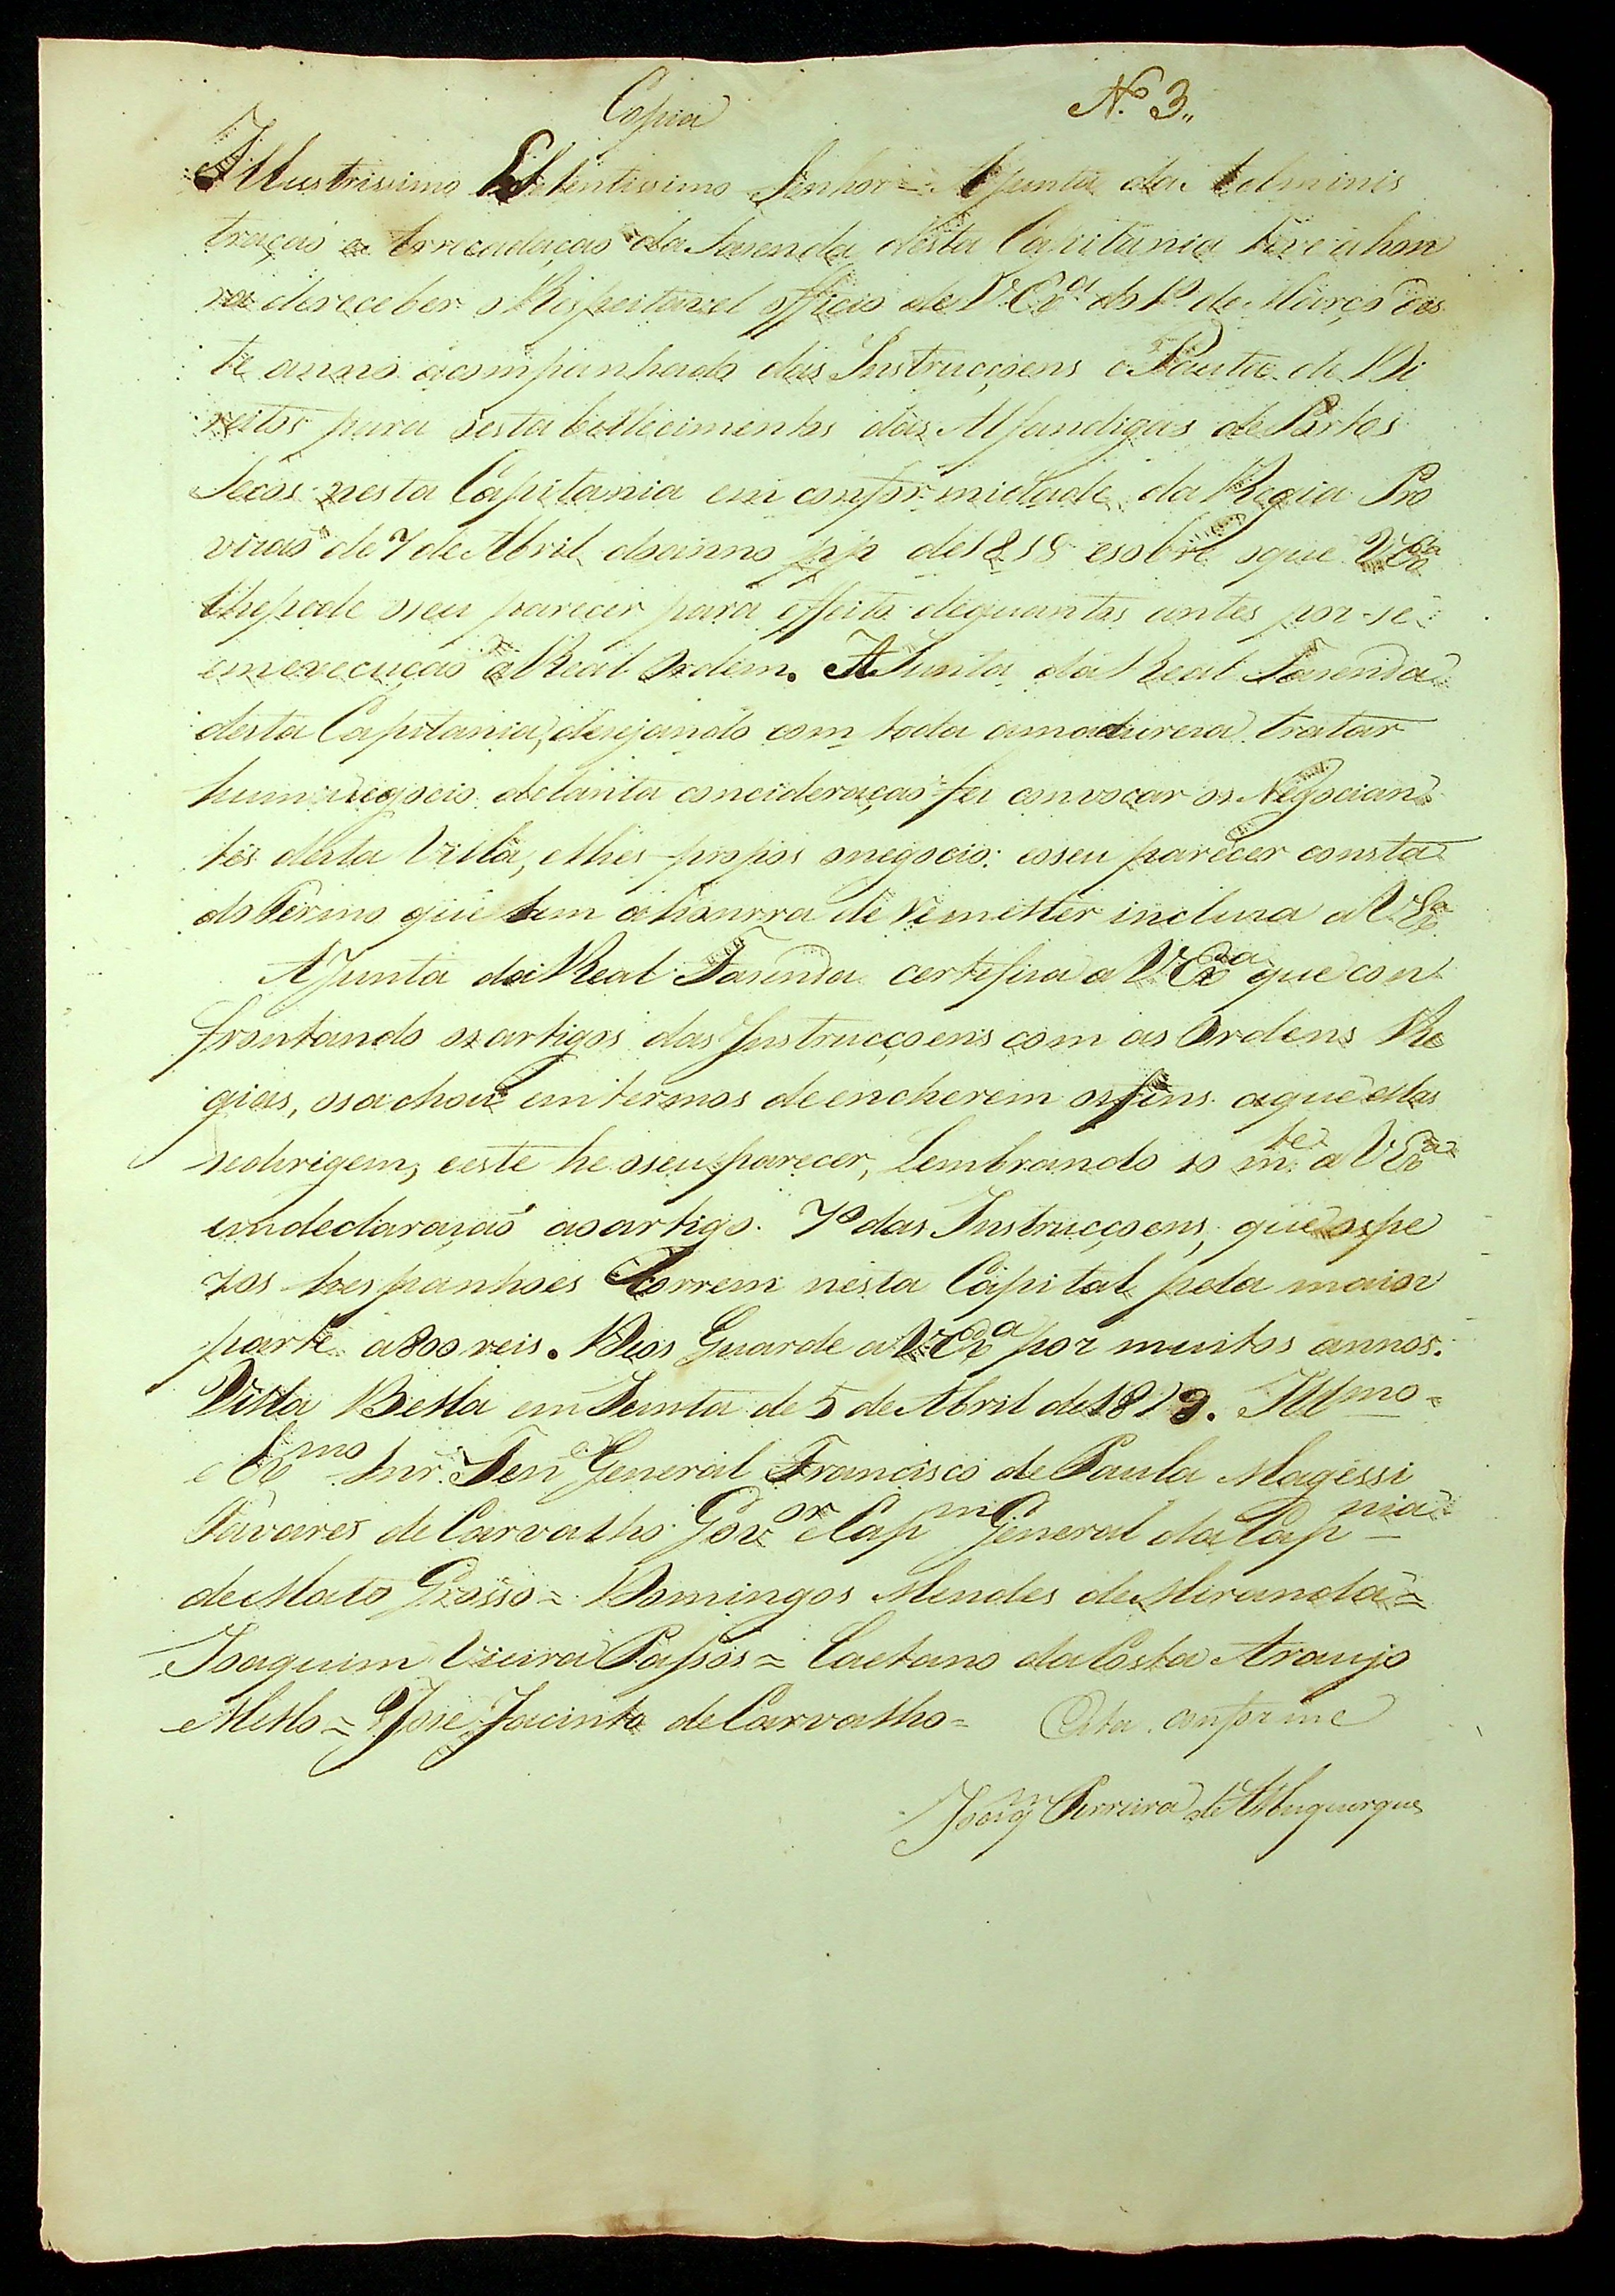 Copia
N.º 3,,
Illustrissimo Exselentissimo Senhor = A Junta da Adminis
traçaõ e Arrecadaçaõ da Fasenda desta Capitania teve a hon
ra de receber o Respeitavel officio de V. Ex.ª do 1º de Março des
te anno acompanhado das Instrucçoens e Pauta de Di
reitos para o establecimento das Alfandigas de Portos
Secos nesta Capitania em conformidade da Regia Pro
visaõ de 7 de Abril do anno pp de 1818 e sobre o que V Exª
lhe pede o seu parecer para effeito de quanto antes por-se
em execuçaõ a Real Ordem. A Junta da Real Fasenda
desta Capitania, desejando com toda a madureza tratar
hum negocio de tanta concideraçaõ fez convocar os Negocian
tes desta Villa, e lhes propos o negocio: e o seu parecer consta
do Termo que tem a honrra de remetter incluza a V Exª
A Junta da Real Fasenda certefica a V Exª que con
frontando os artigos das Instrucçoens com as Ordens Re
gias, os achou em termos de encherem os fins a que ellas
se dirigem, e este he o seu parecer, Lembrando so m.te a V Exª
em declaraçaõ ao artigo 7º das Instrucçoens, que os pe
zos hespanhoes correm nesta Capital pela maior
parte a 800 reis. Deos Guarde a V Exª por muitos annos.
Villa Bella em Junta de 5 de Abril de 1819. Illmo =
e Exmo Snr. Ten.e General Francisco de Paula Magessi
Tavares de Carvalho Gov.or e Cap.m General da Cap.nia
de Mato Grosso = Domingos Mendes de Miranda =
Joaquim Vieira Passos = Caetano da Costa Araujo
Mello = José Jacinto de Carvalho = Esta conforme
Joaq.m Ferreira de Albuquerque